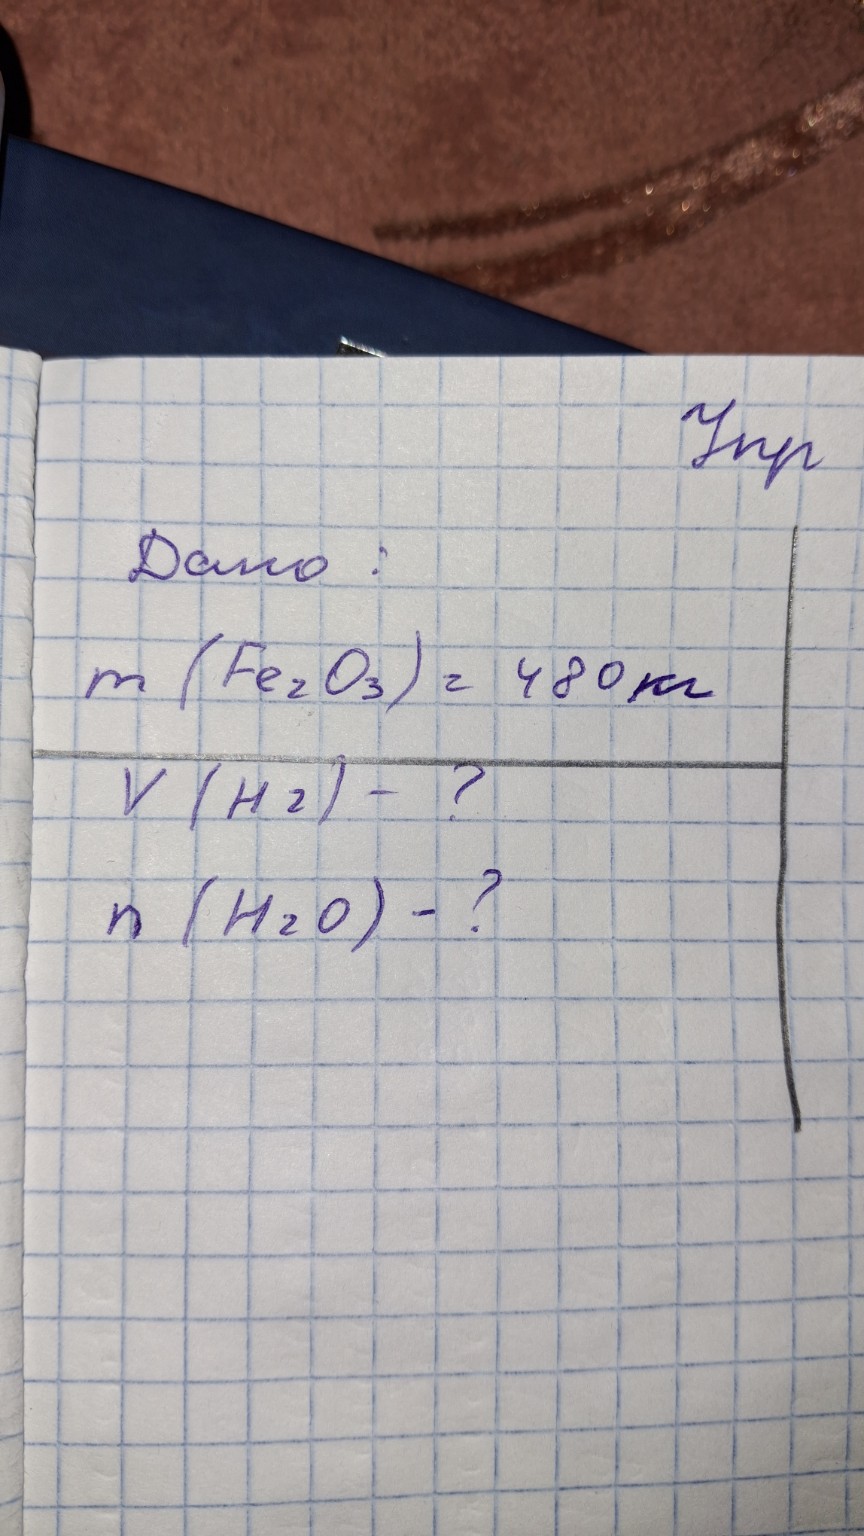 Упр
Дано:
m (Fe₂O₃) = 480 кг
V (H₂) - ?
n (H₂O) - ?